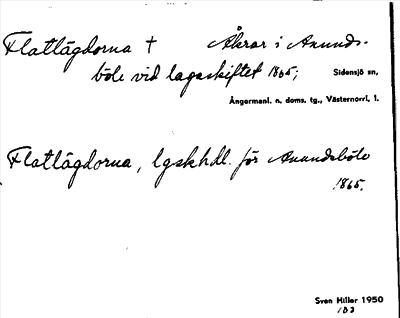 Flatlägdorna † Åkrar i Anunds-
böle vid lagaskiftet 1865; Sidensjö sn,
Ångermanl. n. doms. tg., Västernorrl. l.
Flatlägdorna, lgskhdl. för Anundsböle
1865.
Sven Hiller 1950
183